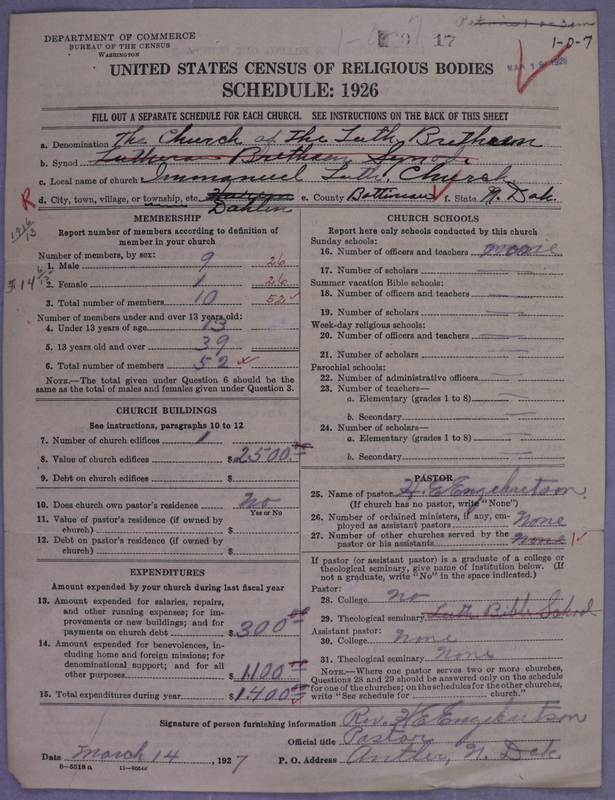 DEPARTMENT OF COMMERCE
BUREAU OF THE CENSUS
WASHINGTON
17
1-0-7
UNITED STATES CENSUS OF RELIGIOUS BODIES
SCHEDULE: 1926
FILL OUT A SEPARATE SCHEDULE FOR EACH CHURCH. SEE INSTRUCTIONS ON THE BACK OF THIS SHEET
a. Denomination The Church of the Luth. Brethren
b. Synod Lutheran Brethren Synod
c. Local name of church Immanuel Luth. Church
R d. City, town, village, or township, etc. Dahlen e. County Bottineau f. State N. Dak.
MEMBERSHIP
Report number of members according to definition of
member in your church
Number of members, by sex:
1. Male 9 26
2. Female 1 26
3. Total number of members 10 52
Number of members under and over 13 years old:
4. Under 13 years of age 13
5. 13 years old and over 39
6. Total number of members 52
NOTE.—The total given under Question 6 should be
the same as the total of males and females given under Question 3.
CHURCH BUILDINGS
See instructions, paragraphs 10 to 12
7. Number of church edifices 1
8. Value of church edifices $2500.00
9. Debt on church edifices $
10. Does church own pastor's residence No
Yes or No
11. Value of pastor's residence (if owned by
church) $
12. Debt on pastor's residence (if owned by
church) $
EXPENDITURES
Amount expended by your church during last fiscal year
13. Amount expended for salaries, repairs,
and other running expenses; for im-
provements or new buildings; and for
payments on church debt $300.00
14. Amount expended for benevolences, in-
cluding home and foreign missions; for
denominational support; and for all
other purposes 1100.00
15. Total expenditures during year $1400.00
CHURCH SCHOOLS
Report here only schools conducted by this church
Sunday schools:
16. Number of officers and teachers none
17. Number of scholars
Summer vacation Bible schools:
18. Number of officers and teachers
19. Number of scholars
Week-day religious schools:
20. Number of officers and teachers
21. Number of scholars
Parochial schools:
22. Number of administrative officers
23. Number of teachers—
a. Elementary (grades 1 to 8)
b. Secondary
24. Number of scholars—
a. Elementary (grades 1 to 8)
b. Secondary
PASTOR
25. Name of pastor H. E. Engebretson
(If church has no pastor, write "None")
26. Number of ordained ministers, if any, em-
ployed as assistant pastors None
27. Number of other churches served by the
pastor or his assistants None 1
If pastor (or assistant pastor) is a graduate of a college or
theological seminary, give name of institution below. (If
not a graduate, write "No" in the space indicated.)
Pastor:
28. College No
29. Theological seminary Luth Bible School
Assistant pastor:
30. College None
31. Theological seminary None
NOTE.—Where one pastor serves two or more churches,
Questions 28 and 29 should be answered only on the schedule
for one of the churches; on the schedules for the other churches,
write "See schedule for ---- church."
Signature of person furnishing information Rev. H E Engebretson
Official title Pastor
Date March 14, 1927 P. O. Address Antler, N. Dak.
8-5518a